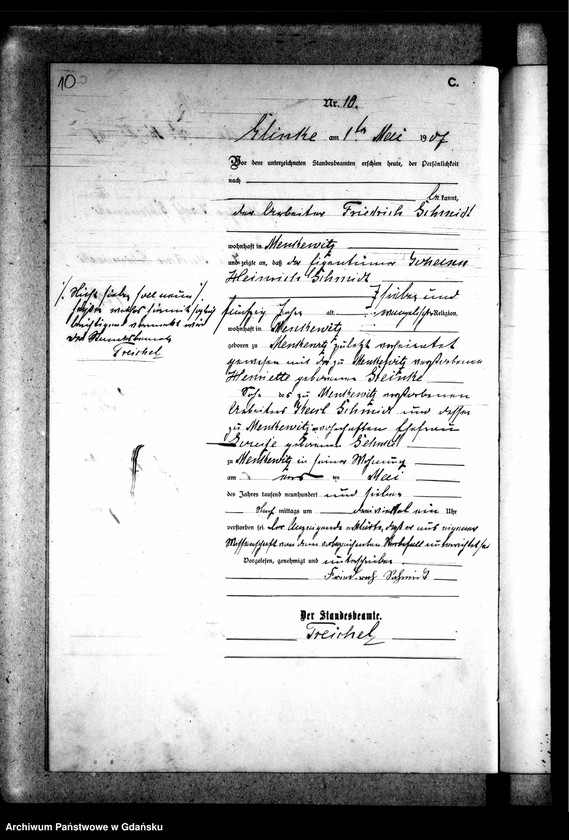 10
C.
Nr. 10.
Klinke am 1ten Mai 1907
Vor dem unterzeichneten Standesbeamten erschien heute, der Persönlichkeit
nach
bekannt,
der Arbeiter Friedrich Schmidt
wohnhaft in Menkewitz
und zeigte an, daß der Eigentümer Johann
Heinrich Schmidt
sieben und
fünfzig Jahre alt, evangelischer Religion,
wohnhaft in Menkewitz
geboren zu Menkewitz zuletzt verheiratet
gewesen mit der zu Menkewitz verstorbenen
Henriette geborenen Steinke
Sohn des zu Menkewitz verstorbenen
Arbeiters Karl Schmidt und dessen
zu Menkewitz wohnhaften Ehefrau
geborenen
zu Menkewitz in seiner Wohnung
am ersten Mai
des Jahres tausend neunhundert und sieben
Nach mittags um dreiviertel ein Uhr
verstorben sei. Der Anzeigende erklärte, daß er aus eigener
Wissenschaft von dem Sterbefall unterrichtet sei
Vorgelesen, genehmigt und unterschrieben
Friedrich Schmidt
Der Standesbeamte.
Treichel
Nicht sieben soll neun
vermerkt wird
Der Standesbeamte
Treichel
Archiwum Państwowe w Gdańsku